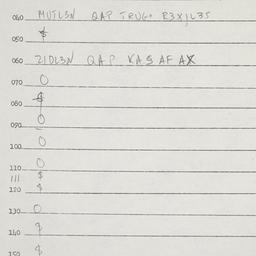 040 MUTL3N QAP TRUG• R3X1L35
050 $
060 ZIDL3N QAP KAS AF AX
070 O
080 $
090 O
100 O
110 O
111 $
120 $
130 O
140 $
150 $